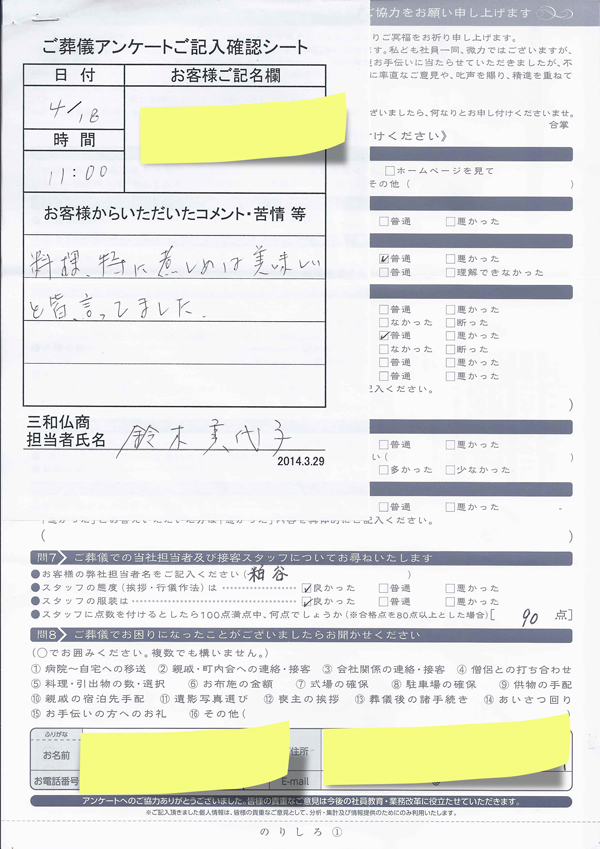 ご協力をお願い申し上げます
ご葬儀アンケートご記入確認シート
日 付
お客様ご記名欄
4/18
時 間
11:00
お客様からいただいたコメント・苦情 等
料理、特に煮しめは美味しい
と皆、言ってました。
三和仏商
担当者氏名 鈴木美代子
2014.3.29
りご冥福をお祈り申し上げます。
す。私ども社員一同、微力ではございますが、
お手伝いに当たらせていただきましたが、不
に率直なご意見や、叱声を賜り、精進を重ねて
ざいましたら、何なりとお申し付けくださいませ。
合掌
付けください》
□ホームページを見て
その他( )
□普通 □悪かった
☑普通 □悪かった
□普通 □理解できなかった
□普通 □悪かった
□なかった □断った
☑普通 □悪かった
□なかった □断った
□普通 □悪かった
□普通 □悪かった
記入ください。
)
□普通 □悪かった
い( )
□多かった □少なかった
□普通 □悪かった
( )
問7 ご葬儀での当社担当者及び接客スタッフについてお尋ねいたします
●お客様の弊社担当者名をご記入ください(粕谷 )
●スタッフの態度(挨拶・行儀作法)は ☑良かった □普通 □悪かった
●スタッフの服装は ☑良かった □普通 □悪かった
●スタッフに点数を付けるとしたら100点満点中、何点でしょうか(※合格点を80点以上とした場合)[ 90 点]
問8 ご葬儀でお困りになったことがございましたらお聞かせください
(○でお囲みください。複数でも構いません。)
①病院～自宅への移送 ②親戚・町内会への連絡・接客 ③会社関係の連絡・接客 ④僧侶との打ち合わせ
⑤料理・引出物の数・選択 ⑥お布施の金額 ⑦式場の確保 ⑧駐車場の確保 ⑨供物の手配
⑩親戚の宿泊先手配 ⑪遺影写真選び ⑫喪主の挨拶 ⑬葬儀後の諸手続き ⑭あいさつ回り
⑮お手伝いの方へのお礼 ⑯その他( )
ふりがな
お名前
ご住所
お電話番号
E-mail
@
アンケートへのご協力ありがとうございました。皆様の貴重なご意見は今後の社員教育・業務改革に役立たせていただきます。
※ご記入頂きました個人情報は、皆様の貴重なご意見として、分析・集計及び情報提供のためにのみ利用いたします。
のりしろ①